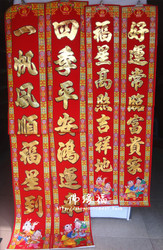 好運常照富貴家
福星高照吉祥地
四季平安鴻運
一帆風順福星到